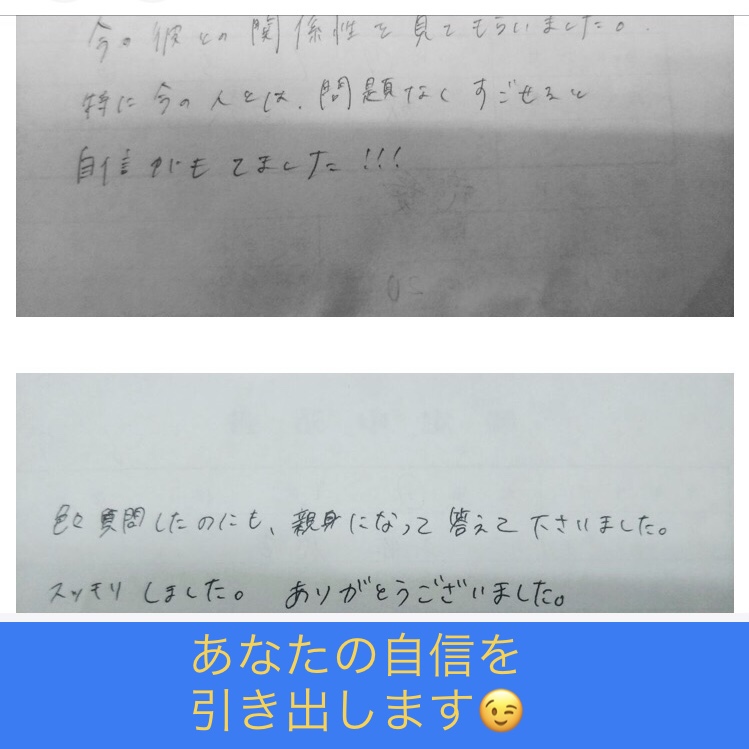 今の彼との関係性を見てもらいました。
特に今の人とは、問題なくすごせると
自信がもてました!!!
色々質問したのにも、親身になって答えて下さいました。
スッキリしました。 ありがとうございました。
あなたの自信を
引き出します😉